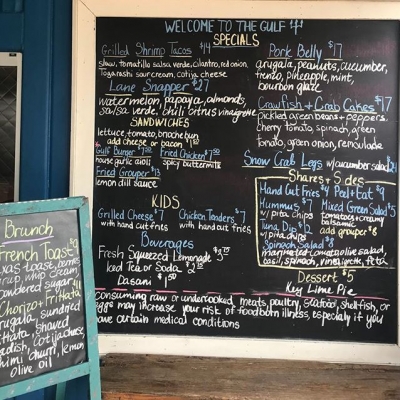 WELCOME TO THE GULF
SPECIALS
Grilled Shrimp Tacos $14
slaw, tomatillo salsa verde, cilantro, red onion,
Togarashi sour cream, cotija cheese
Lane Snapper $27
watermelon, papaya, almonds,
salsa verde, chili citrus vinaigrette
SANDWICHES
lettuce, tomato, brioche bun
add cheese or bacon
Gulf Burger $7.50
house garlic aioli
Fried Chicken $7.50
spicy buttermilk
Fried Grouper $13
lemon dill sauce
KIDS
Grilled Cheese $7
with hand cut fries
Chicken Tenders $7
with hand cut fries
Beverages
Fresh Squeezed Lemonade
Iced Tea or Soda
Dasani
Pork Belly $17
arugula, peanuts, cucumber,
pineapple, mint,
bourbon glaze
Crawfish + Crab Cakes $17
pickled green beans + peppers,
cherry tomato, spinach, green
tomato, green onion, remoulade
Snow Crab Legs w/ cucumber salad
Shares + Sides
Hand Cut Fries $4
Peel + Eat $9
Hummus $7
w/ pita chips
Mixed Green Salad $5
tomatoes, creamy
balsamic
Tuna Dip $12
w/ pita chips
add grouper $8
Spinach Salad $8
marinated tomato, olive salad,
basil, spinach, feta
Dessert $5
Key Lime Pie
Consuming raw or undercooked meats, poultry, seafood, shellfish, or
eggs may increase your risk of foodborn illness, especially if you
have certain medical conditions
Brunch
French Toast
toast, berries,
whip cream
powdered sugar
Chorizo Frittata
arugula, sundried
shaved
cotija cheese,
churri, lemon
olive oil